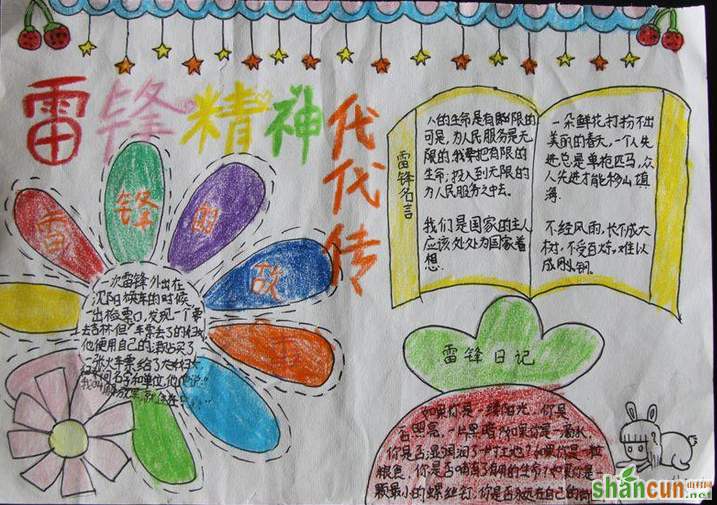 雷锋精神代代传
雷锋名言
人的生命是有限的
可是，为人民服务是无
限的，我要把有限的
生命，投入到无限的
为人民服务之中去。
我们是国家的主人
应该处处为国家着
想。
一朵鲜花打扮不出
美丽的春天，一个人先
进总是单枪匹马，众
人先进才能移山填
海
不经风雨，长不成大
树，不受百炼，难以
成刚钢。
雷锋的故
一次雷锋外出在
沈阳换车的时候
一出检票口，发现一个
他使用自己的
雷锋日记
如果你是一缕阳光，你是
一片黑暗？如果你是一滴水
你是否滋润了一寸土地？如果你是一粒
粮食，你是否哺育了有用的生命？如果你是一
颗最小的螺丝钉，你是否永远在自己的
shancun
山村网
.net